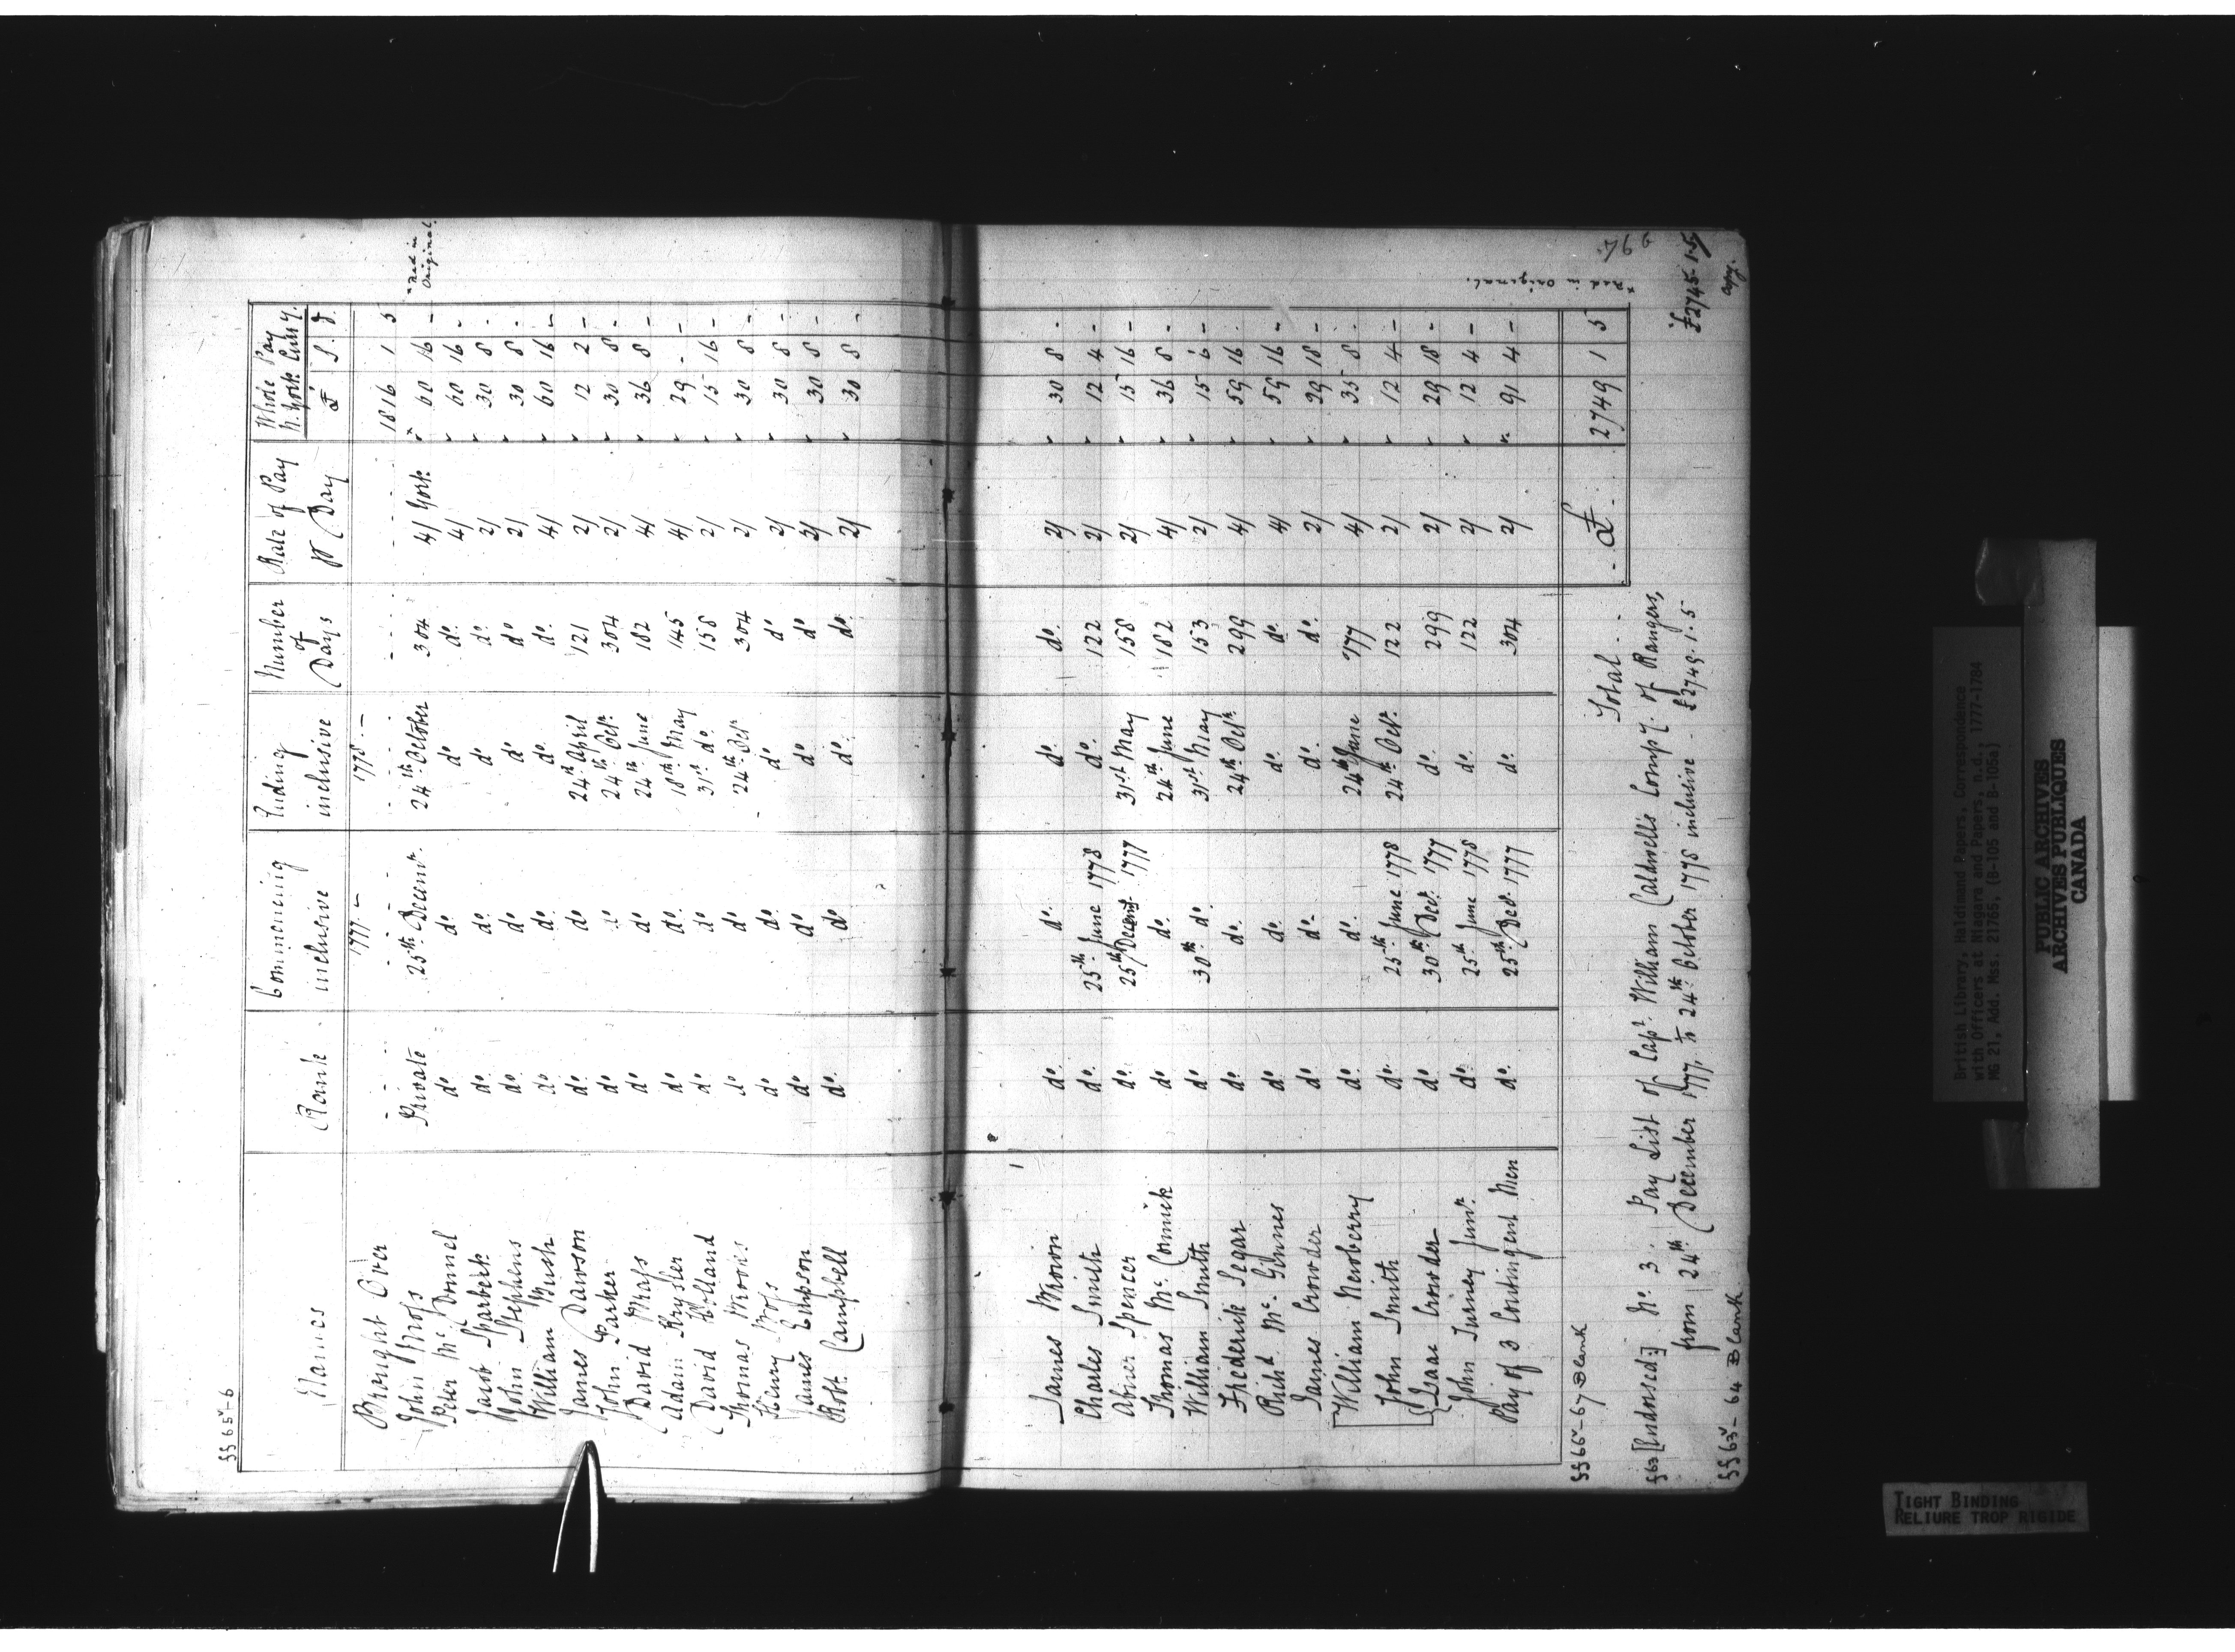 §§ 65v-6
Names | Rank | Commencing inclusive | Ending inclusive | Number of Days | Rate of Pay ⅌ Day | Whole Pay N. York Curr'y. £ S. d.
Brought Over | 1777.- | 1778.- | 1816 1 5
John Ross | Private | 25th Decemr. | 24th October | 304 | 4/ York | 60 16 -
Peter Mc Donnel | do | do | do | do. | 4/ | 60 16 -
Jacob Sparbeck | do. | do. | do. | do. | 2/ | 30 8 -
John Stephens | do. | do | do | do | 2/ | 30 8 -
William Bush | do | do. | do. | do. | 4/ | 60 16 -
James Dawson | do. | do | 24th April | 121 | 2/ | 12 2 -
John Parker | do. | do | 24th Octr. | 304 | 2/ | 30 8 -
David Bass | do | do | 24th June | 182 | 4/ | 36 8 -
Adam Krysler | do | do. | 18th May | 145 | 4/ | 29 - -
David Holland | do. | do | 31st do. | 158 | 2/ | 15 16 -
Thomas Brooks | do | do | 24th Octr | 304 | 2/ | 30 8 -
Henry Ross | do | do. | do. | do | 2/ | 30 8 -
James Empson | do. | do. | do | do | 2/ | 30 8 -
Robt. Campbell | do. | do. | do. | do. | 2/ | 30 8 -
* Red in original.
James Brown | do. | do. | do. | do. | 2/ | 30 8 -
Charles Smith | do. | 25th June 1778 | do. | 122 | 2/ | 12 4 -
Abner Spencer | do. | 25th Decemr. 1777 | 31st May | 158 | 2/ | 15 16 -
Thomas Mc Cormick | do | do. | 24th June | 182 | 4/ | 36 8 -
William Smith | do | 30th do. | 31st May | 153 | 2/ | 15 6 -
Frederick Segar | do. | do. | 24th Octr. | 299 | 4/ | 59 16
Richd. Mc. Ginnes | do. | do. | do. | do. | 4/ | 59 16 -
James Crowder | do | do. | do. | do. | 2/ | 29 18 -
William Newberry | do. | do. | 24th June | 177 | 4/ | 35 8
John Smith | do. | 25th June 1778 | 24th Octr. | 122 | 2/ | 12 4 -
Isaac Crowder | do | 30th Decr. 1777 | do. | 299 | 2/ | 29 18 -
John Turney Junr. | do. | 25th June 1778 | do. | 122 | 2/ | 12 4 -
Pay of 3 Contingent Men | do. | 25th Decr. 1777 | do. | 304 | 2/ | 91 4 -
Total - - £ 2749 1 5
* Red in original.
96
§§ 66v-67 Blank
§63 [Endorsed:] No. 3. Pay List of Capt. William Caldwell's Comp'y. of Rangers,
from 24th December 1777, to 24th October 1778 inclusive - £2749.1.5
£2745-1-5
copy.
§§ 63v-64 Blank
British Library, Haldimand Papers, Correspondence
with Officers at Niagara and Papers, n.d., 1777-1784
MG 21, Add. Mss. 21765, (B-105 and B-105a)
PUBLIC ARCHIVES
ARCHIVES PUBLIQUES
CANADA
TIGHT BINDING
RELIURE TROP RIGIDE